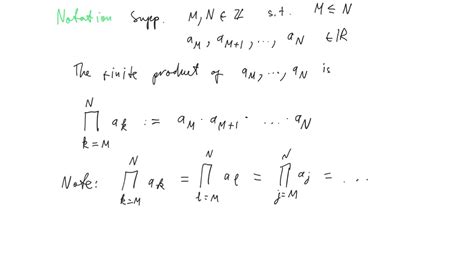 Notation Supp. M, N ∈ ℤ s.t. M ≤ N
a_M, a_{M+1}, ..., a_N ∈ ℝ
The finite product of a_M, ..., a_N is
∏_{k=M}^{N} a_k := a_M · a_{M+1} · .... · a_N
Note: ∏_{k=M}^{N} a_k = ∏_{l=M}^{N} a_l = ∏_{j=M}^{N} a_j = ...